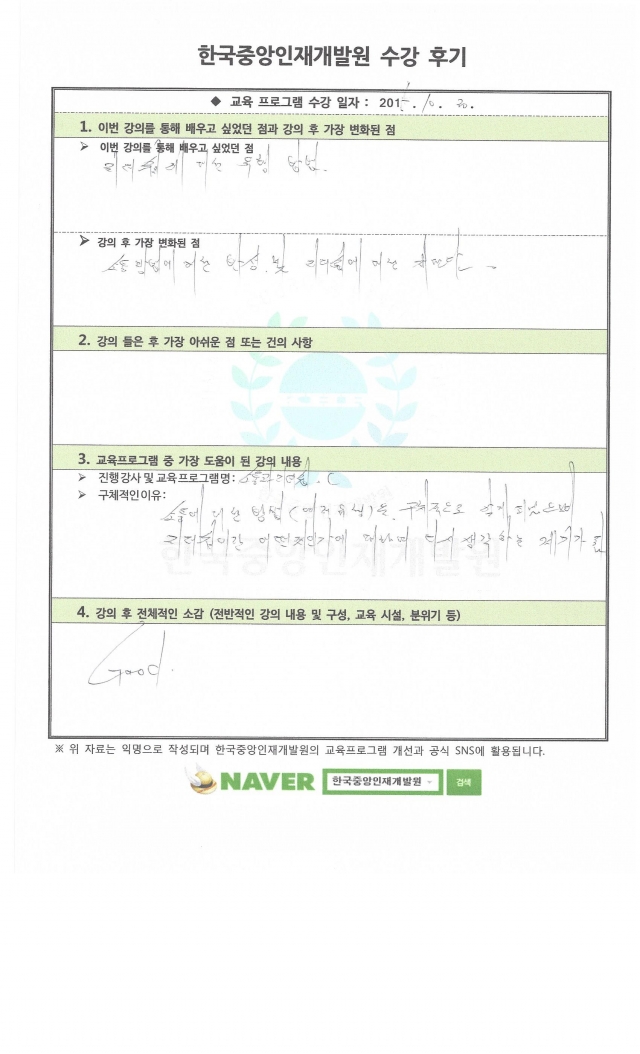 한국중앙인재개발원 수강 후기
◆ 교육 프로그램 수강 일자 : 2015. 10. 30.
1. 이번 강의를 통해 배우고 싶었던 점과 강의 후 가장 변화된 점
➢ 이번 강의를 통해 배우고 싶었던 점
리더쉽에 대한 유형 방법.
➢ 강의 후 가장 변화된 점
소통방법에 대한 반성 및 리더쉽에 대한
2. 강의 들은 후 가장 아쉬운 점 또는 건의 사항
3. 교육프로그램 중 가장 도움이 된 강의 내용
➢ 진행강사 및 교육프로그램명 : 소통과 리더쉽.
➢ 구체적인 이유:
소통에 대한 방법(여러유형)을 쉽게
리더쉽이란 어떤것인가에 대하여 다시 생각하는 계기가 됨
한국중앙인재개발원
4. 강의 후 전체적인 소감 (전반적인 강의 내용 및 구성, 교육 시설, 분위기 등)
Good.
※ 위 자료는 익명으로 작성되며 한국중앙인재개발원의 교육프로그램 개선과 공식 SNS에 활용됩니다.
NAVER 한국중앙인재개발원 검색